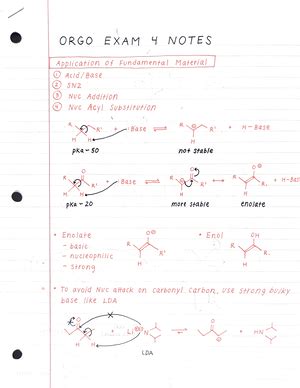 ORGO EXAM 4 NOTES
Application of Fundamental Material
① Acid/Base
② SN2
③ Nuc Addition
④ Nuc Acyl Substitution
R R' + :Base ⇌ R R' + H-Base
H H H
pka ~ 50 not stable
O O O⊖
R R' + :Base ⇌ R R' ↔ R R, + H-Base
H H H H
pka ~ 20 more stable enolate
• Enolate
- basic
- nucleophilic
- strong
O⊖
R R'
• Enol
OH
R R'
• To avoid Nuc attack on carbonyl carbon, use strong bulky
base like LDA
O + Li N ⇌ O + HN
H H
LDA